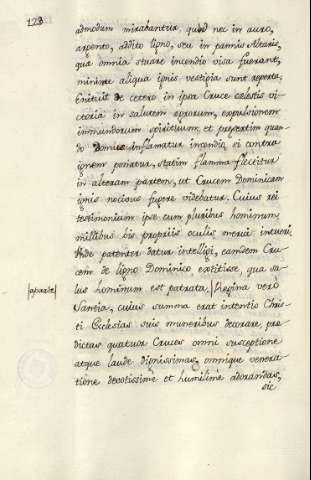 123
admodum mirabantur, quod nec in auro,
argento, addito ligno, seu in pannis Altaris,
qua omnia stuare incendio visa fuerant,
minime aliqua ignis vestigia sunt reperta.
Enituit de cetero in ipsa Cruce celestis vi-
ctoria in salutem egrorum, expulsionem
inmundorum spirituum, et presertim quan-
do Domus inflamatur incendio, si contra
ignem ponatur, statim flamma flectitur
in alteram partem, ut Crucem Dominicam
ignis nocivus fugere videbatur. Cuius rei
testimonium ipse cum pluribus hominum
millibus bis propriis oculis merui intueri
Unde patenter datur intelligi, eamdem Cru-
cem de ligno Dominico extitisse, qua sa-
lus hominum est patrata. Regina vero
|aparte|
Santia, cuius summa erat intentio Chris-
ti Ecclesias suis muneribus decorare, pre-
dictas quatuor Cruces omni susceptione
atque laude dignissimas, omnique venera-
tione devotissime et humilime adorandas,
sic